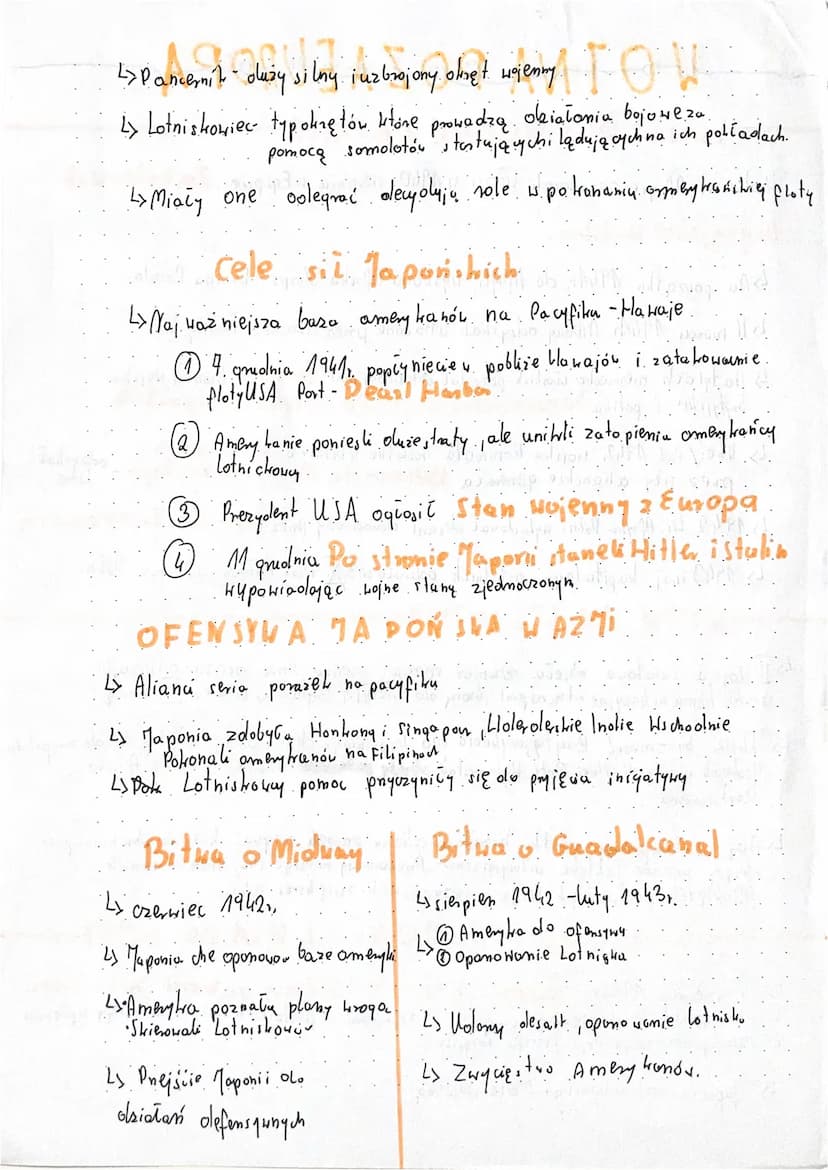 ↳ Pancernik - duży silny i uzbrojony okręt wojenny
↳ Lotniskowiec - typ okrętów które prowadzą działania bojowe za
pomocą samolotów startujących i lądujących na ich pokładach.
↳ Miały one odegrać decydują role w pokonaniu amerykańskiej floty
Cele sił Japońskich
↳ Najważniejsza baza amerykanów na Pacyfiku - Hawaje
① 7 grudnia 1941r. popłyniecie w pobliże Hawajów i zatakowanie
floty USA. Port - Pearl Harbor
② Amerykanie ponieśli duże straty, ale unikli zatopienia amerykańcy
lotnickowy
③ Prezydent USA ogłosił Stan wojenny z Europa
④ 11 grudnia Po stronie Japonii staneli Hitler i Stalin
wypowiadając wojne stany zjednoczonym.
OFENSYWA JAPOŃSKA W AZJI
↳ Alianci seria porażek na pacyfiku
↳ Japonia zdobyła Honkong i Singapur, Holenderskie Indie Wschodnie
Pokonali amerykanów na Filipinach
↳ Lotniskowy pomoc przyczyniły się do przejęcia inicjatywy
Bitwa o Midway
↳ czerwiec 1942r,
↳ Japonia chce opanować baze ameryki
↳ • Ameryka poznała plany wroga
• Skierowali Lotniskowów
↳ Przejście Japonii do
działań defensywnych
Bitwa o Guadalcanal
↳ sierpień 1942 - luty 1943r.
↳ ① Ameryka do ofensywy
② Opanowanie Lotniska
↳ Udany desant, opanowanie lotniska
↳ Zwycięstwo Amerykanów.